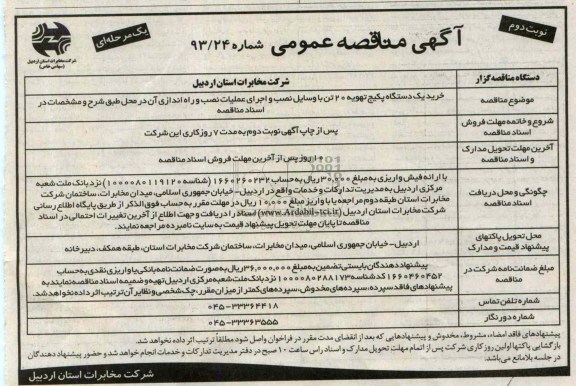 نوبت دوم
آگهی مناقصه عمومی شماره ۹۳/۲۴
یک مرحله‌ای
شرکت مخابرات استان اردبیل
(سهامی خاص)
دستگاه مناقصه گزار
شرکت مخابرات استان اردبیل
موضوع مناقصه
خرید یک دستگاه پکیج تهویه ۲۰ تن با وسایل نصب و اجرای عملیات نصب و راه اندازی آن در محل طبق شرح و مشخصات در
اسناد مناقصه
شروع و خاتمه مهلت فروش
اسناد مناقصه
پس از چاپ آگهی نوبت دوم به مدت ۷ روز کاری این شرکت
آخرین مهلت تحویل مدارک
و اسناد مناقصه
۱۰ روز پس از آخرین مهلت فروش اسناد مناقصه
چگونگی و محل دریافت
اسناد مناقصه
با ارائه فیش واریزی به مبلغ ۳۰,۰۰۰ ریال به حساب ۱۶۶۰۲۶۰۲۳۲ (شناسه ۱۰۰۰۰۸۰۱۱۹۱۲۰) نزد بانک ملت شعبه
مرکزی اردبیل به مدیریت تدارکات و خدمات واقع در اردبیل - خیابان جمهوری اسلامی، میدان مخابرات، ساختمان شرکت
مخابرات استان طبقه دوم مراجعه یا با واریز مبلغ ۱۰,۰۰۰ ریال در مهلت مقرر به حساب فوق الذکر از طریق پایگاه اطلاع رسانی
شرکت مخابرات استان اردبیل (www.Ardabil-tci.ir) اسناد را دریافت و جهت اطلاع از آخرین تغییرات احتمالی در اسناد
مناقصه تا پایان مهلت تحویل پیشنهاد قیمت به سایت نامبرده مراجعه نمایند.
محل تحویل پاکتهای
پیشنهاد قیمت و مدارک
اردبیل - خیابان جمهوری اسلامی، میدان مخابرات، ساختمان شرکت مخابرات استان، طبقه همکف، دبیرخانه
مبلغ ضمانت نامه شرکت در
مناقصه
پیشنهاد دهندگان بایستی تضمین به مبلغ ۳۶,۰۰۰,۰۰۰ ریال به صورت ضمانت نامه بانکی یا واریز نقدی به حساب
۱۶۶۰۴۶۰۴۵۲ کد شناسه ۱۰۰۰۰۸۰۲۸۸۱۷۳ نزد بانک ملت شعبه مرکزی اردبیل تهیه و ضمیمه اسناد مناقصه نمایند به
پیشنهادهای فاقد سپرده، سپرده‌های مخدوش، سپرده‌های کمتر از میزان مقرر، چک شخصی و نظایر آن ترتیب اثر داده نخواهد شد.
شماره تلفن تماس
۰۴۵-۳۳۳۶۴۴۱۸
شماره دورنگار
۰۴۵-۳۳۳۶۳۵۵۵
پیشنهادهای فاقد امضاء، مشروط، مخدوش و پیشنهادهایی که بعد از انقضای مدت مقرر در فراخوان واصل شود مطلقاً ترتیب اثر داده نخواهد شد.
بازگشایی پاکتها اولین روز کاری شرکت پس از اتمام مهلت تحویل مدارک و اسناد راس ساعت ۱۰ صبح در دفتر مدیریت تدارکات و خدمات انجام خواهد شد و حضور پیشنهاد دهندگان
در جلسه بلامانع می‌باشد.
شرکت مخابرات استان اردبیل